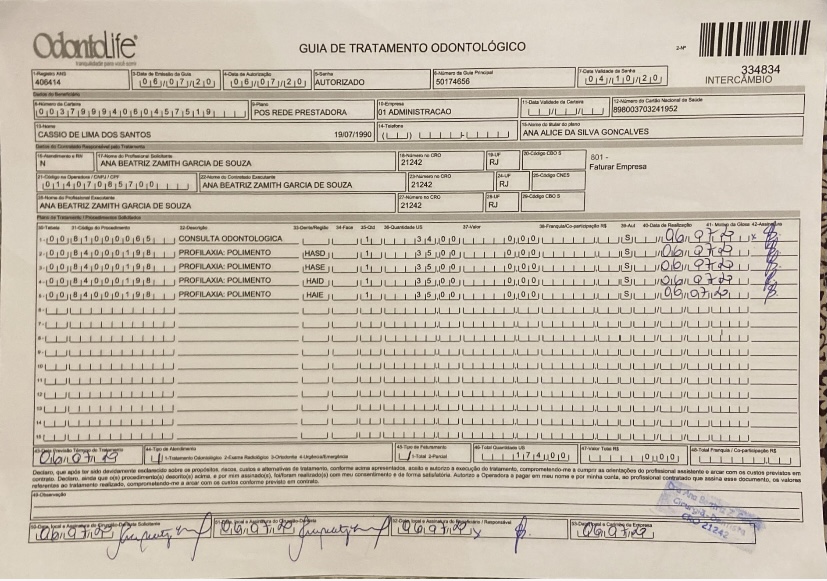 OdontoLife
tranquilidade para você sorrir
GUIA DE TRATAMENTO ODONTOLÓGICO
2-Nº
334834
INTERCÂMBIO
1-Registro ANS 3-Data de Emissão da Guia 4-Data da Autorização 5-Senha 6-Número da Guia Principal 7-Data Validade da Senha
406414 06/07/20 06/07/20 AUTORIZADO 50174656 04/10/20
Dados do Beneficiário
8-Número da Carteira 9-Plano 10-Empresa 11-Data Validade da Carteira 12-Número do Cartão Nacional de Saúde
POS REDE PRESTADORA 01 ADMINISTRACAO 898003703241952
13-Nome 14-Telefone 15-Nome do titular do plano
CASSIO DE LIMA DOS SANTOS 19/07/1990 ANA ALICE DA SILVA GONCALVES
Dados do Contratado Responsável pelo Tratamento
16-Atendimento a RN 17-Nome do Profissional Solicitante 18-Número no CRO 19-UF 20-Código CBO S
N ANA BEATRIZ ZAMITH GARCIA DE SOUZA 21242 RJ
801 -
Faturar Empresa
21-Código na Operadora / CNPJ / CPF 22-Nome do Contratado Executante 23-Número no CRO 24-UF 25-Código CNES
01407085700 ANA BEATRIZ ZAMITH GARCIA DE SOUZA 21242 RJ
26-Nome do Profissional Executante 27-Número no CRO 28-UF 29-Código CBO S
ANA BEATRIZ ZAMITH GARCIA DE SOUZA 21242 RJ
Plano de Tratamento / Procedimentos Solicitados
30-Tabela 31-Código do Procedimento 32-Descrição 33-Dente/Região 34-Face 35-Qtd 36-Quantidade US 37-Valor 38-Franquia/Co-participação R$ 39-Aut 40-Data de Realização 41- Motivo da Glosa 42-Assinatura
1- 00 81000065 CONSULTA ODONTOLOGICA 1 34 00 0 00 S 06 07 20 x
2- 00 84000198 PROFILAXIA: POLIMENTO HASD 1 35 00 0 00 S 06 07 20
3- 00 84000198 PROFILAXIA: POLIMENTO HASE 1 35 00 0 00 S 06 07 20
4- 00 84000198 PROFILAXIA: POLIMENTO HAID 1 35 00 0 00 S 06 07 20
5- 00 84000198 PROFILAXIA: POLIMENTO HAIE 1 35 00 0 00 S 06 07 20
6-
7-
8-
9-
10-
11-
12-
13-
14-
15-
43-Data Previsão Término do Tratamento 44-Tipo de Atendimento 45-Tipo de Faturamento 46-Total Quantidade US 47-Valor Total R$ 48-Total Franquia / Co-participação R$
06 07 20 1-Tratamento Odontológico 2-Exame Radiológico 3-Ortodontia 4-Urgência/Emergência 1-Total 2-Parcial 174 00 0 00
Declaro, que após ter sido devidamente esclarecido sobre os propósitos, riscos, custos e alternativas de tratamento, conforme acima apresentados, aceito e autorizo a execução do tratamento, comprometendo-me a cumprir as orientações do profissional assistente e arcar com os custos previstos em
contrato. Declaro, ainda que o(s) procedimento(s) descrito(s) acima, e por mim assinado(s), foi/foram realizado(s) com meu consentimento e de forma satisfatória. Autorizo a Operadora a pagar em meu nome e por minha conta, ao profissional contratado que assina esse documento, os valores
referentes ao tratamento realizado, comprometendo-me a arcar com os custos conforme previsto em contrato.
49-Observação
CRO 21242
50-Data, local e Assinatura do Cirurgião-Dentista Solicitante 51-Data, local e Assinatura do Cirurgião-Dentista 52-Data, local e Assinatura do Beneficiário / Responsável 53-Data, local e Carimbo da Empresa
06 07 20 06 07 20 06 07 20 x 06 07 20